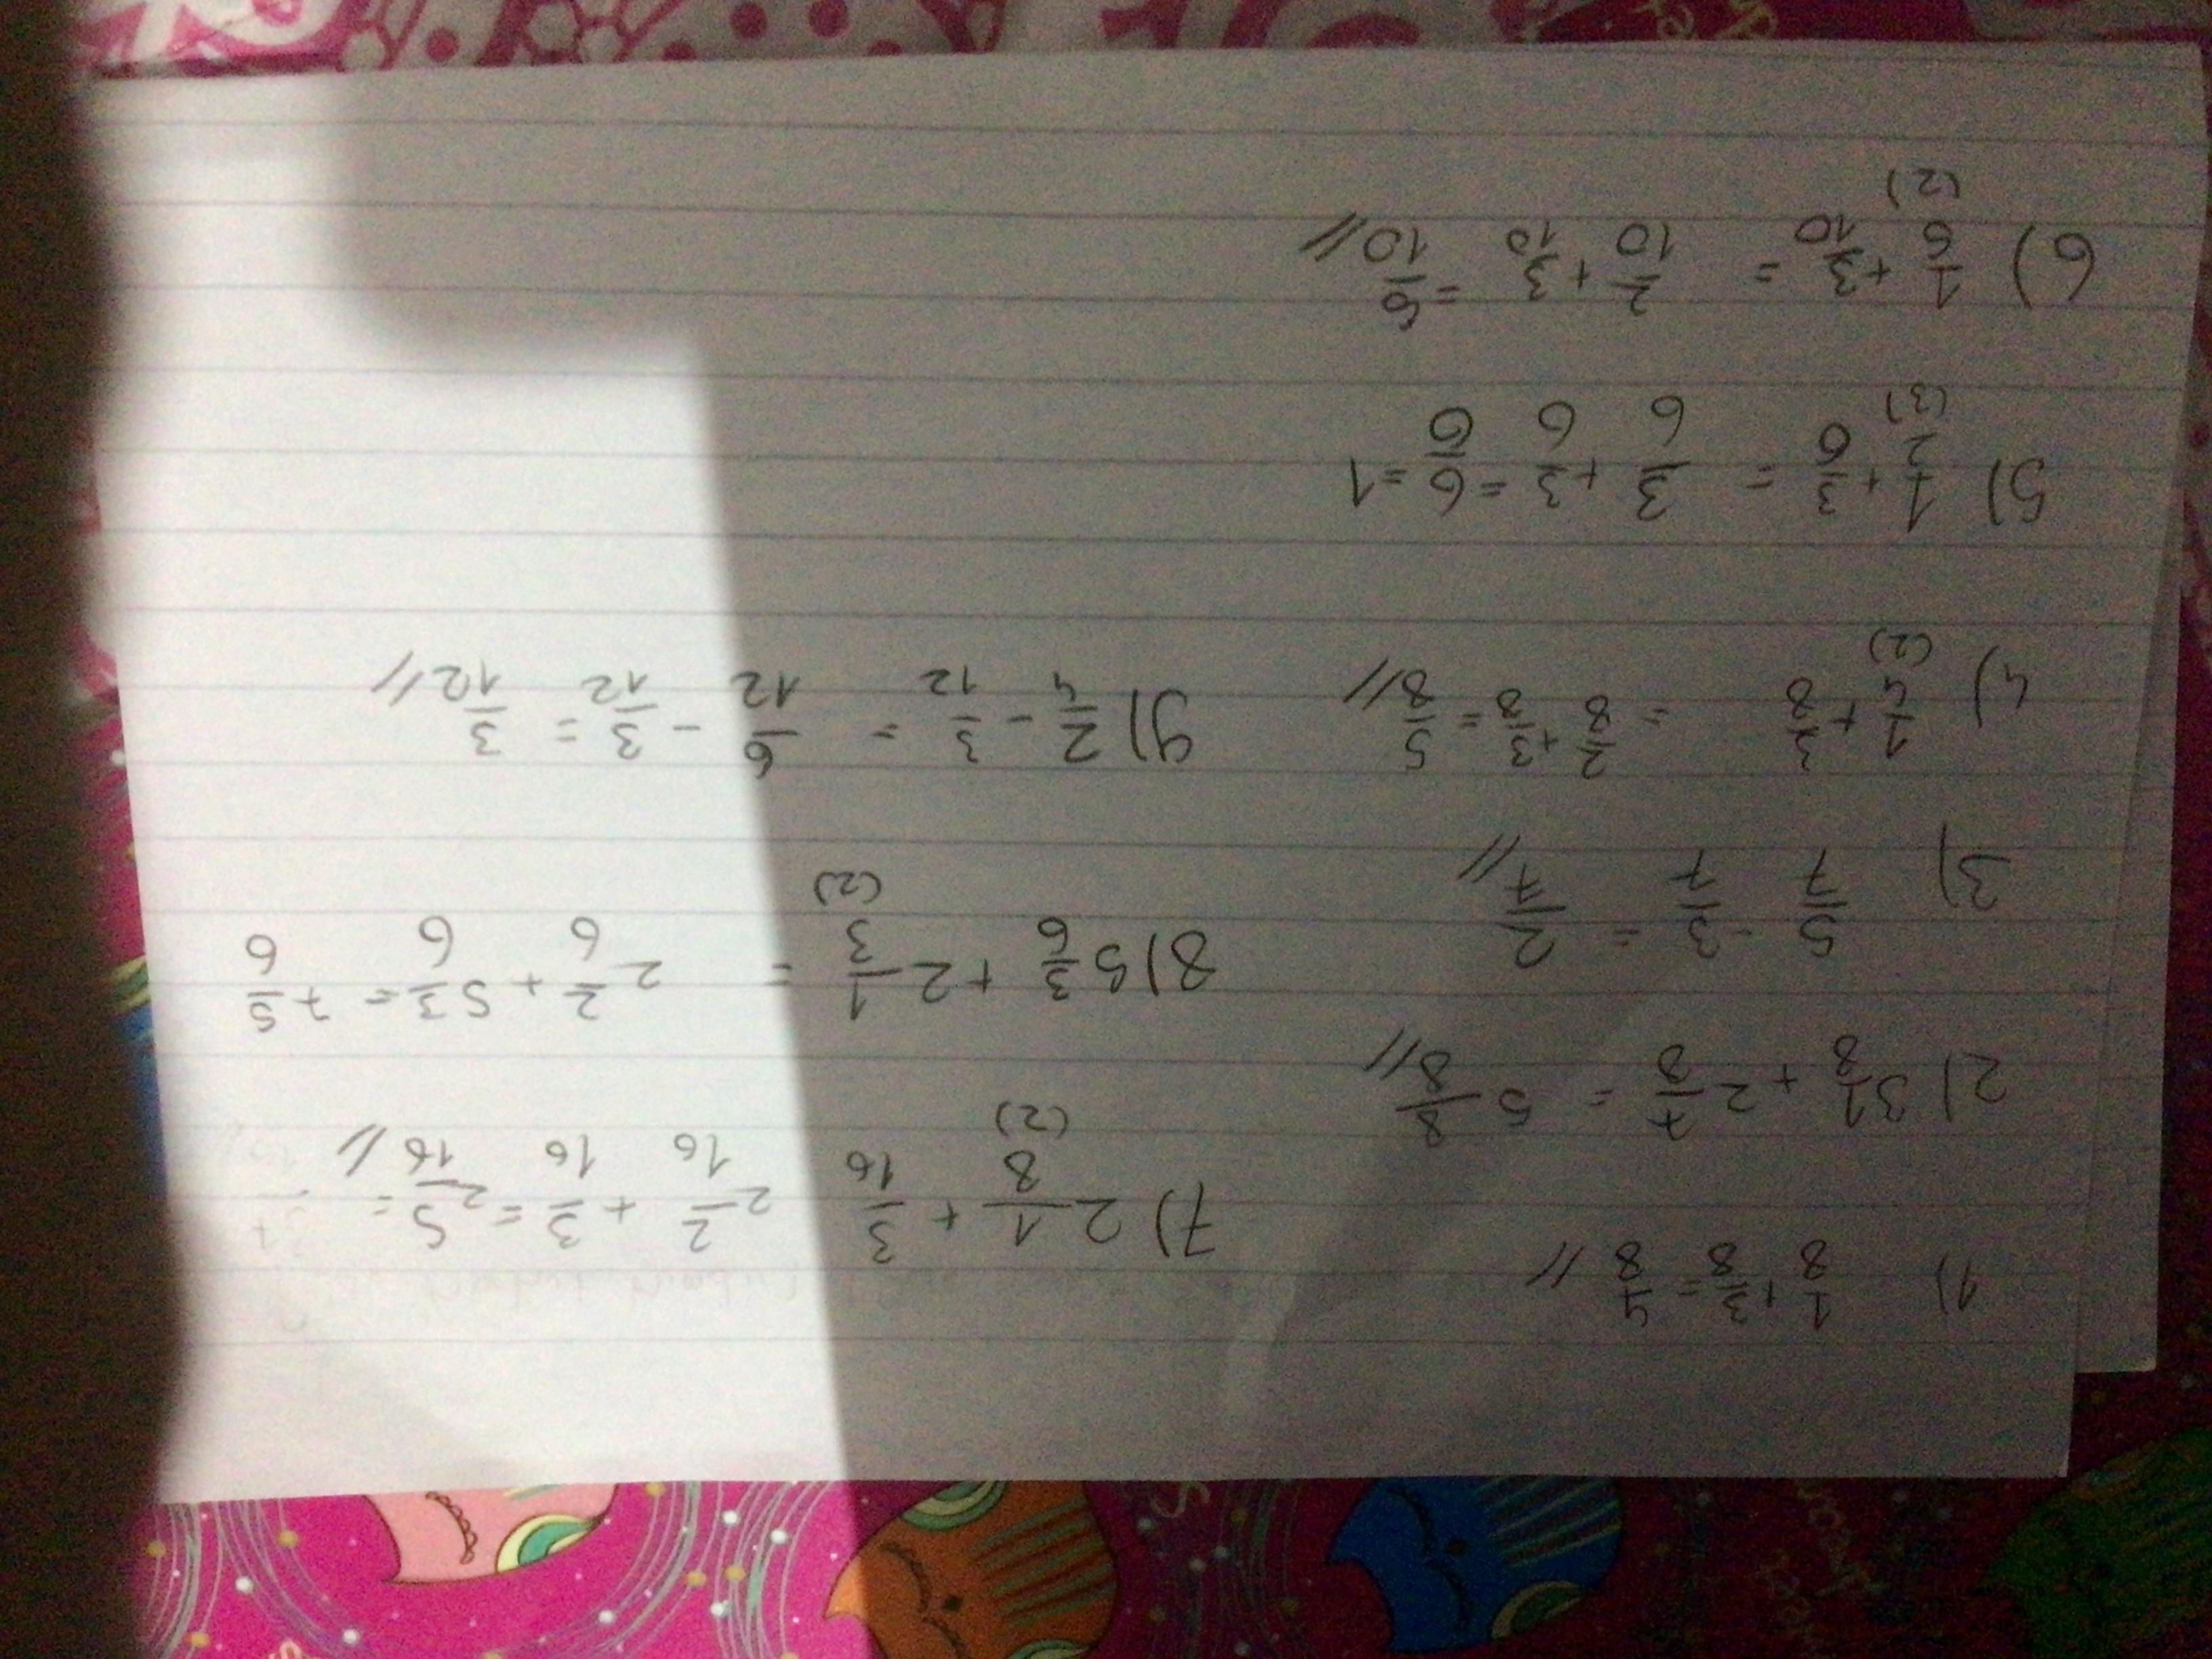 1) 1/8 + 3/8 = 4/8 //
2) 3 1/8 + 2 7/8 = 5 8/8 //
3) 5/7 - 3/7 = 2/7 //
4) 1/4 + 3/8 = 2/8 + 3/8 = 5/8 //
(2)
5) 1/2 + 3/6 = 3/6 + 3/6 = 6/6 = 1
(3)
6) 1/5 + 3/10 = 2/10 + 3/10 = 5/10 //
(2)
7) 2 1/8 + 3/16 2 2/16 + 3/16 = 2 5/16 = //
(2)
8) 5 3/6 + 2 1/3 = 2 2/6 + 5 3/6 = 7 5/6
(2)
9) 2/4 - 3/12 = 6/12 - 3/12 = 3/12 //